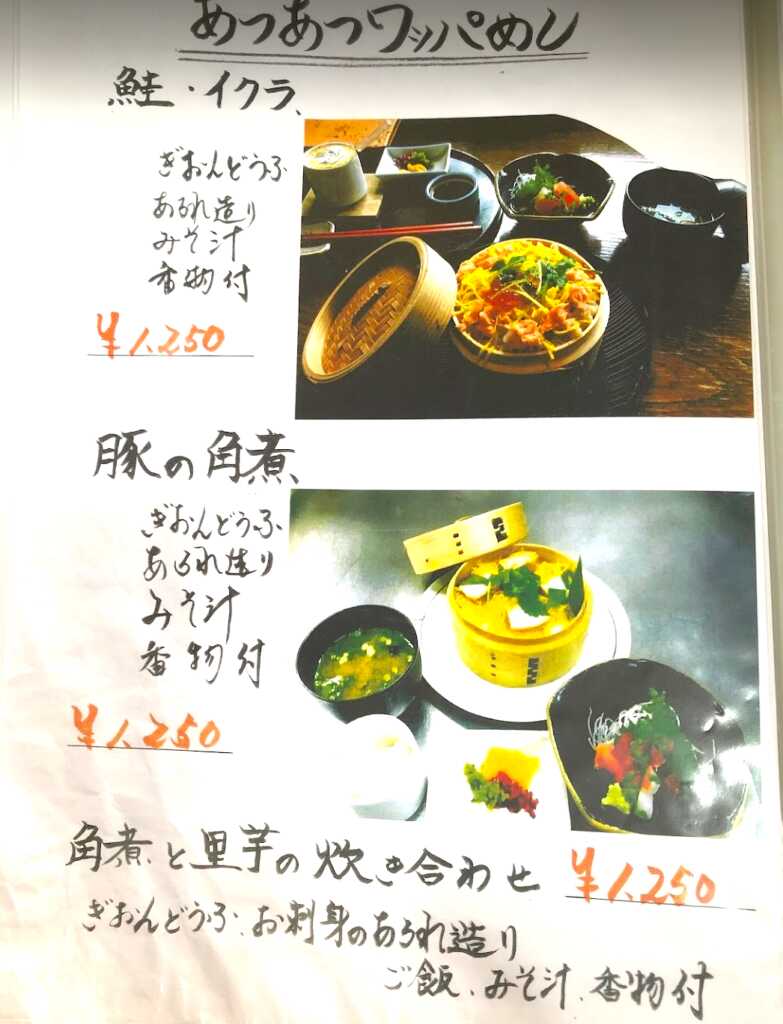 あつあつワッパめし
鮭・イクラ
ぎおんどうふ
あられ造り
みそ汁
香物付
¥1,250
豚の角煮
ぎおんどうふ
あられ造り
みそ汁
香物付
¥1,250
角煮と里芋の炊き合わせ ¥1,250
ぎおんどうふ、お刺身のあられ造り
ご飯、みそ汁、香物付